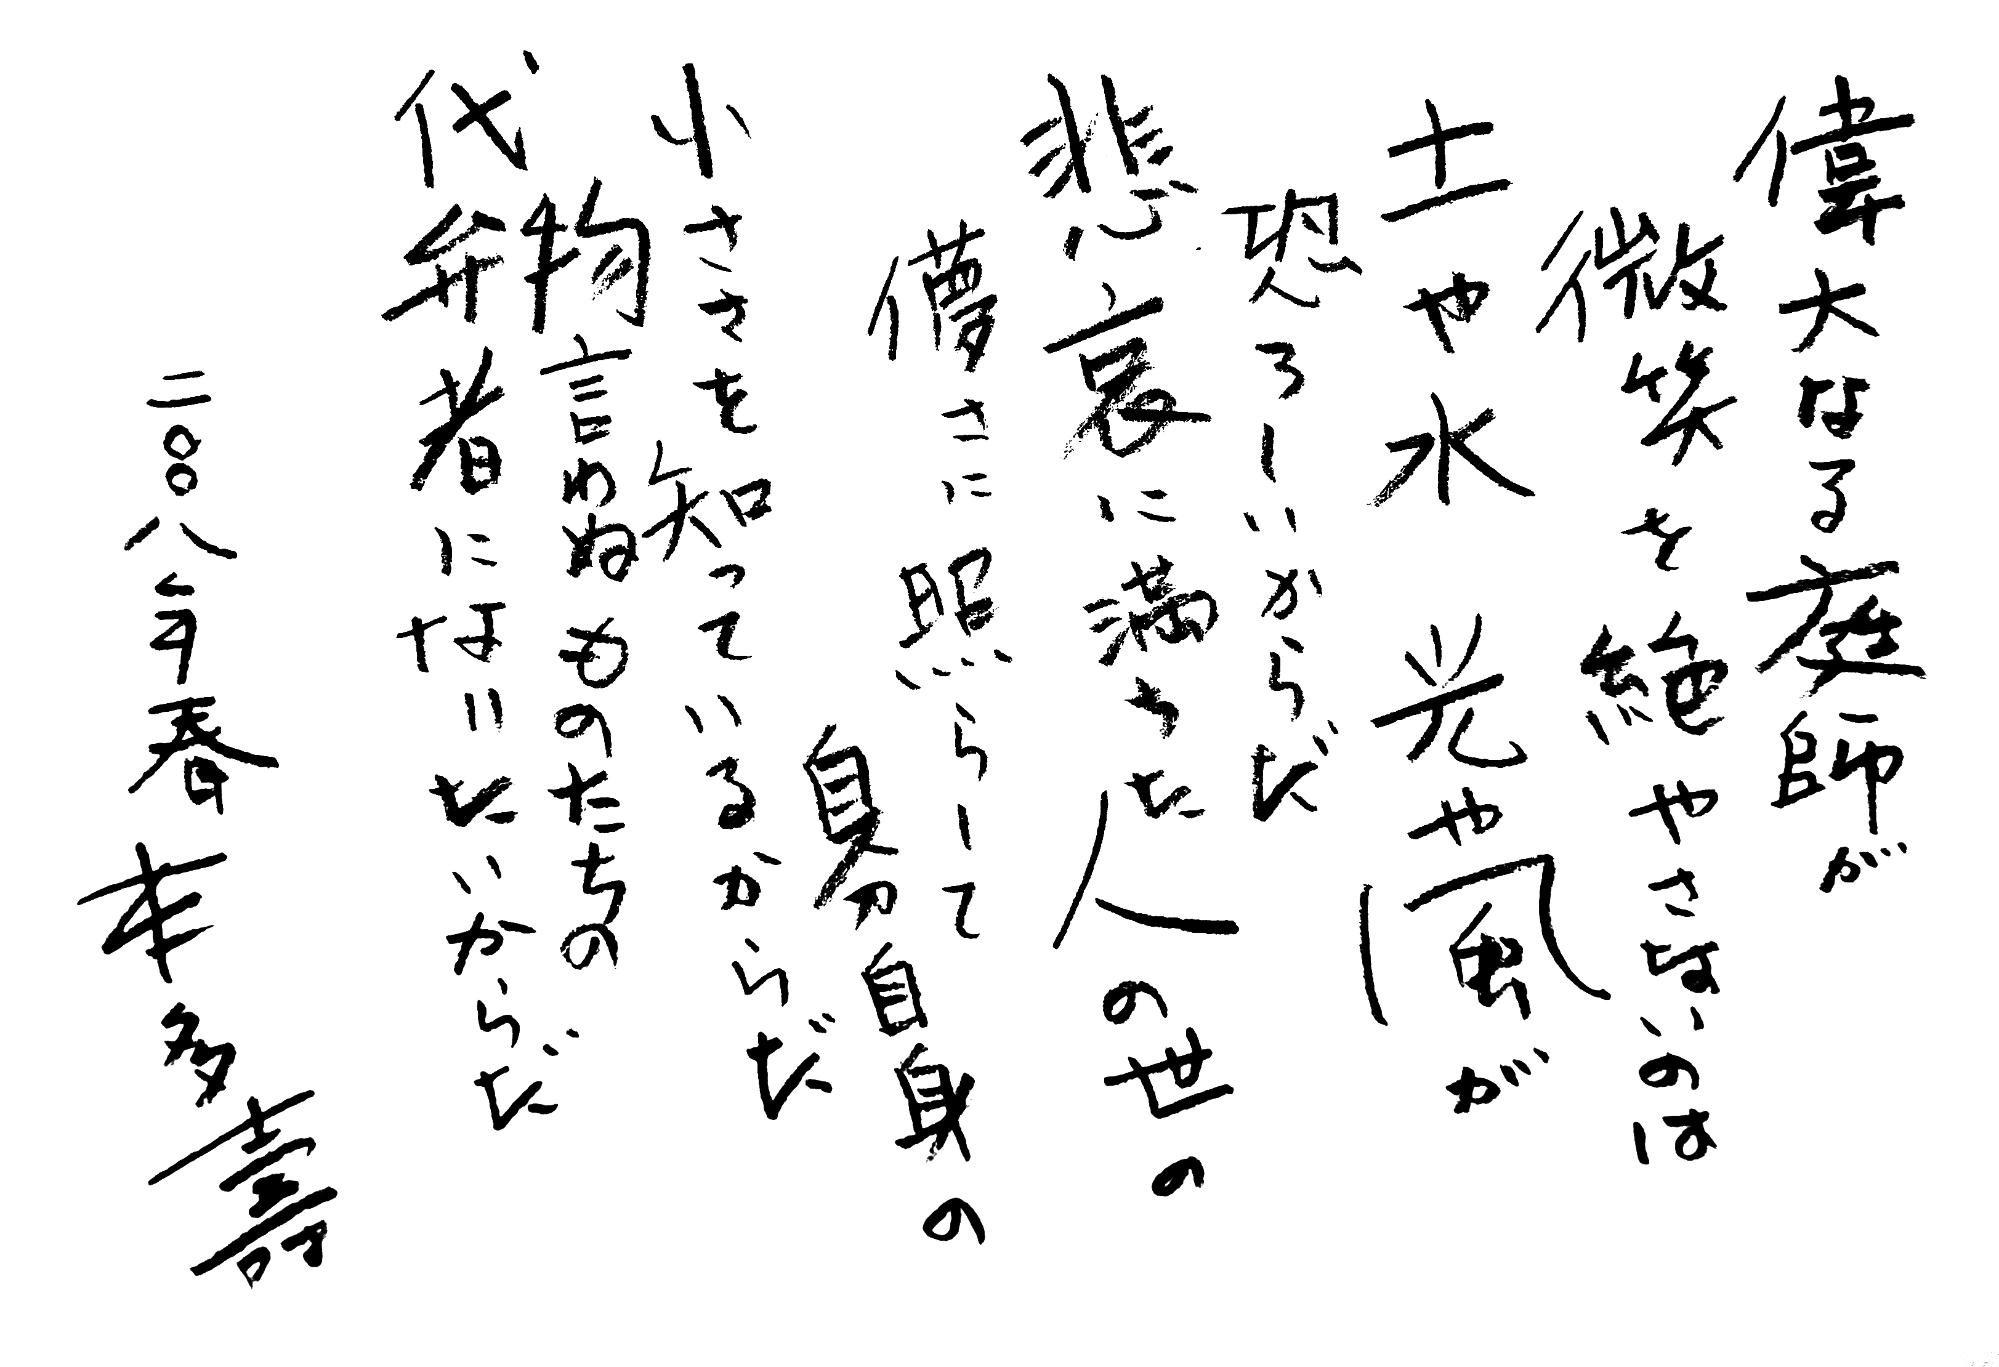 偉大なる庭師が
微笑を絶やさないのは
土や水 光や風が
恐ろしいからだ
悲哀に満ちた人の世の
儚さに照らして
自分自身の
小ささを知っているからだ
物言わぬものたちの
代弁者になりたいからだ
二〇〇八年春 本多壽